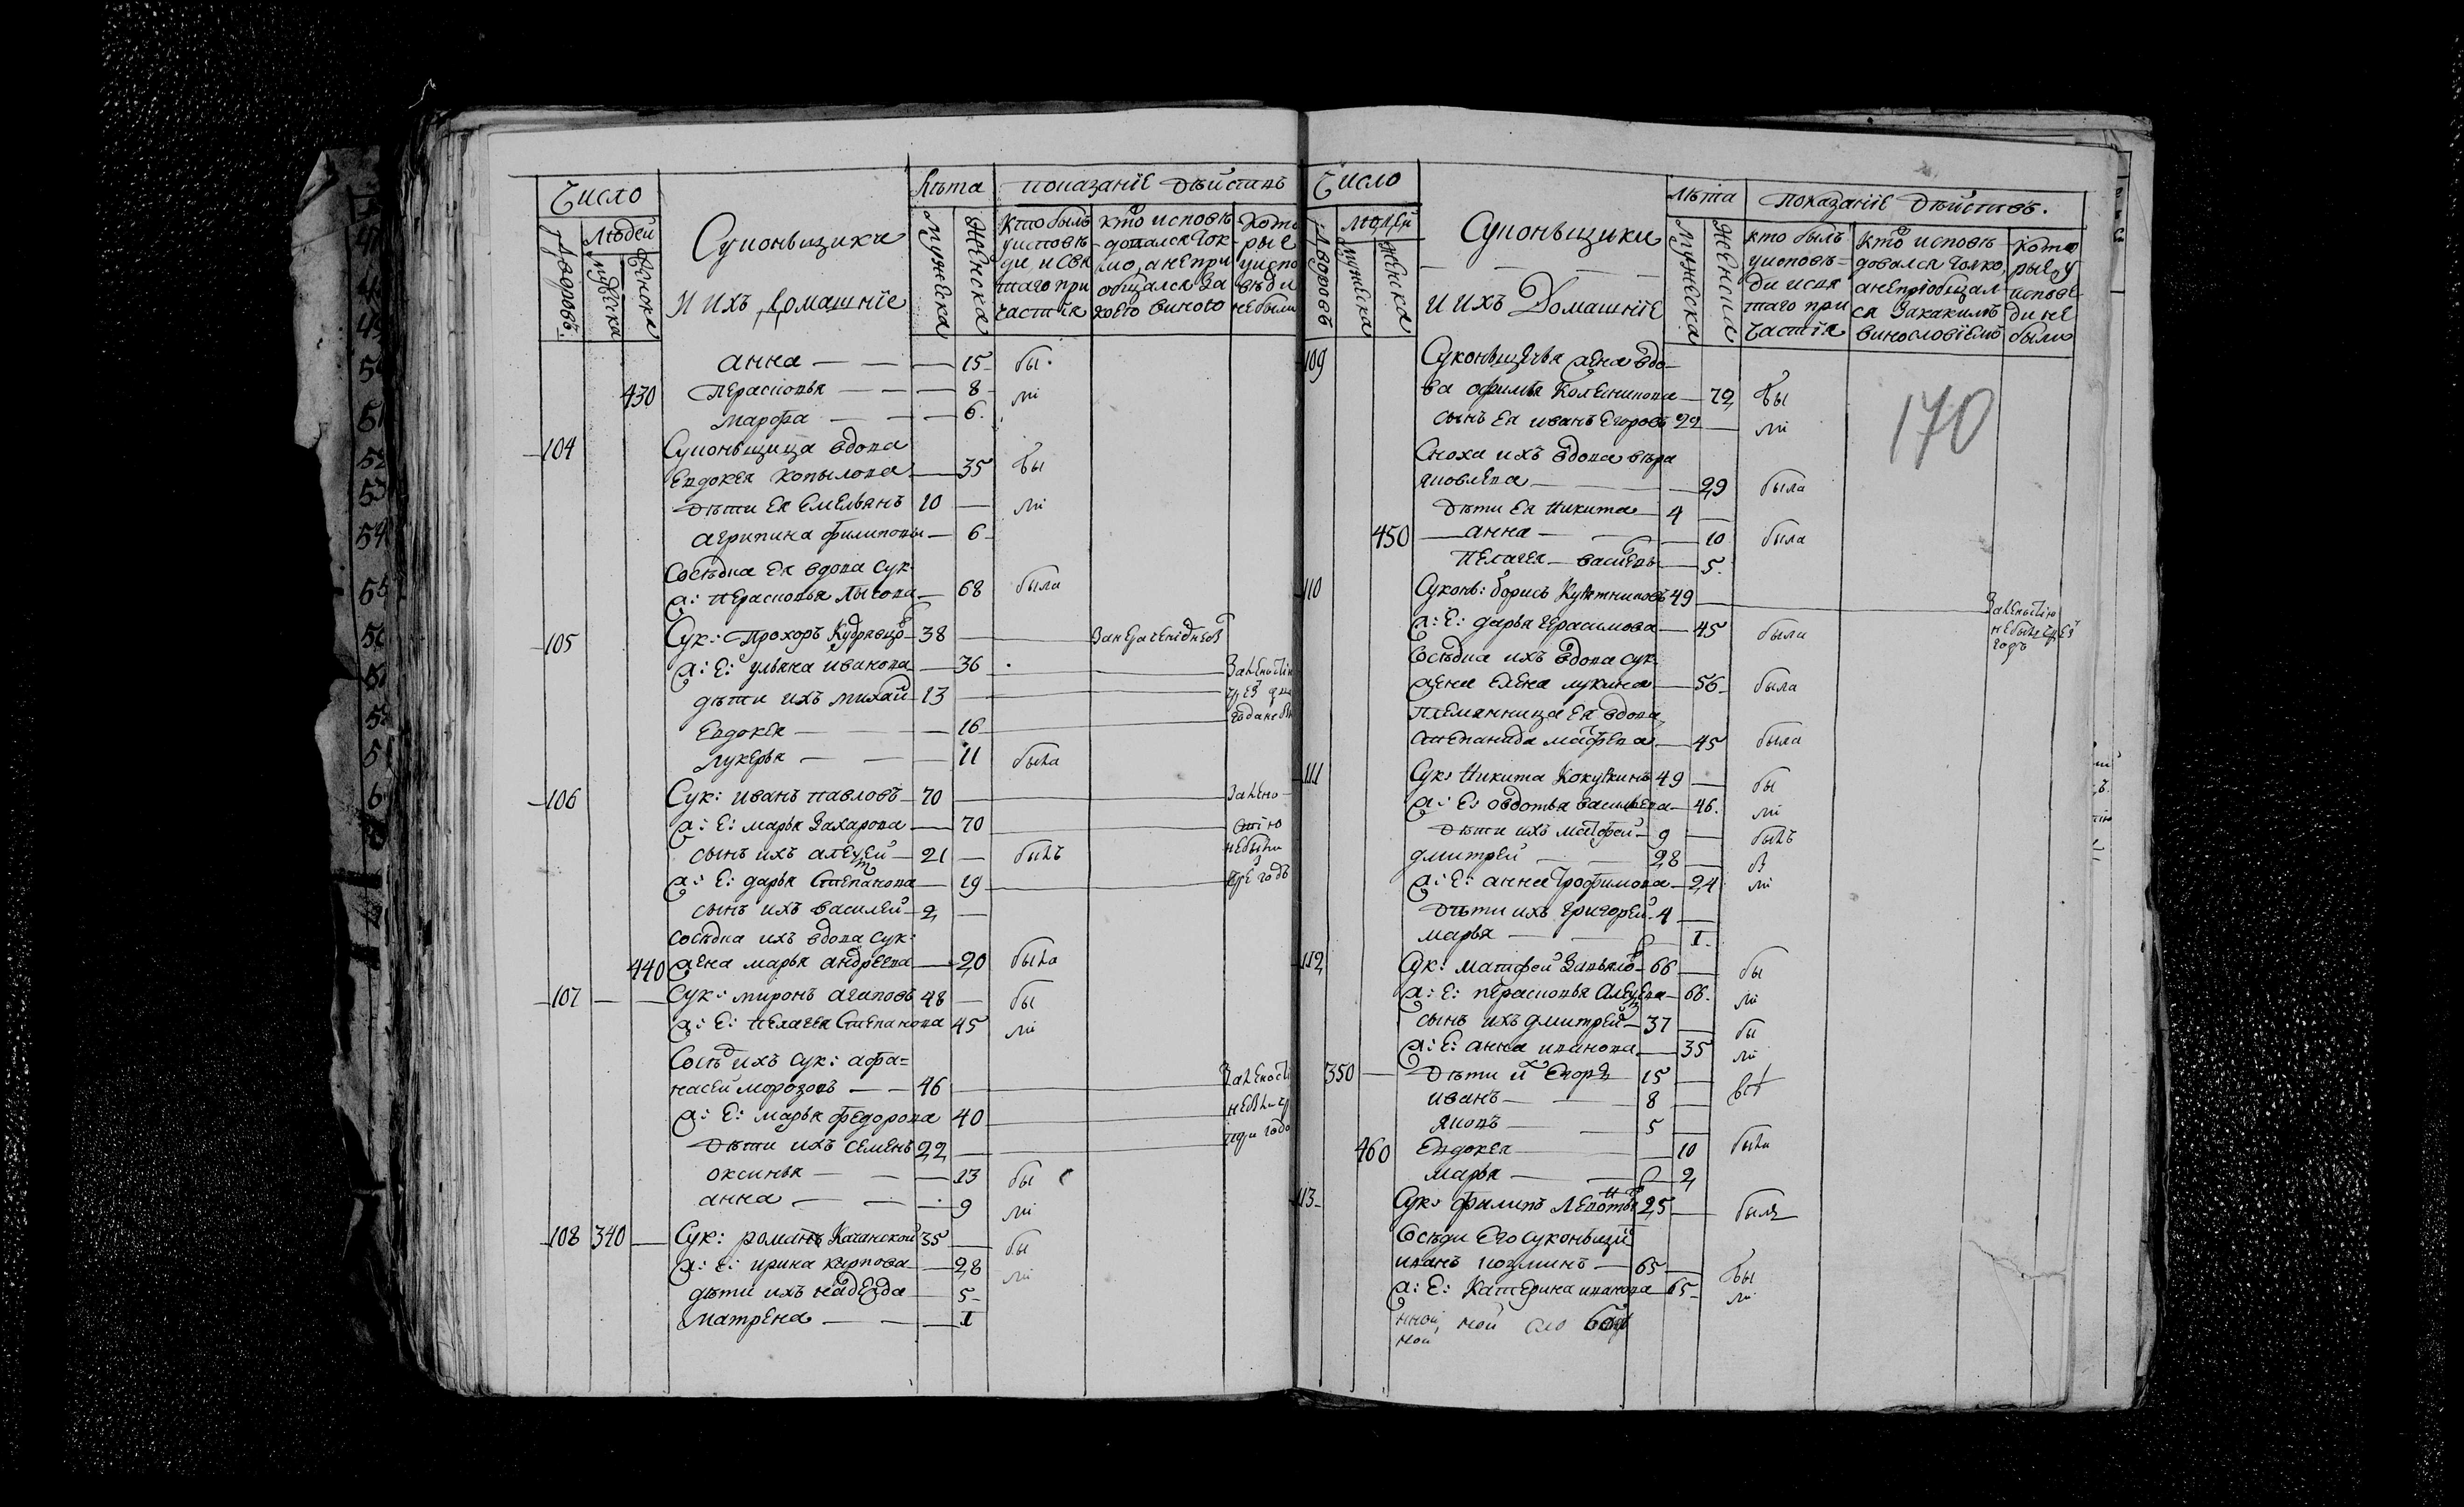 Число
Людей
Дворовъ.
мужеска
женска
Суконьщики
И ИХЪ Домашнїе
Лѣта
мужеска
женска
показанїе дѣйствъ
Кто былъ
уисповѣ
ди, и Свя
таго при
частїя
Кто исповѣ
довался Ток
мо, анепри
общался За
коего виною
Кото
рые
уиспо
вѣди
небыли
анна — 15 бы
430 Перасковья — 8 ли
марфа — 6
104 Суконьщица вдова
Евдокея Копылова — 35 бы
дѣти Ея Емельянъ 10 — ли
агрипина филиповы — 6
Сосѣдка Ея вдова Сук:
ж: перасковья Лысова — 68 была
105 Сук: Прохоръ Кудрявцо 38 —
ж: Е: ульяна иванова — 36
дѣти ихъ михай 13 —
Евдокея — 16
лукерья — 11 была
106 Сук: иванъ павловъ 70 — Залено
ж: Е: марья Захарова — 70 стїю
сынъ ихъ алеѯей 21 — былъ небыли
ж: Е: дарья Степанова — 19
сынъ ихъ василей 2 —
сосѣдка ихъ вдова сук:
440 жена марья андреева — 20 была
107 Сук: миронъ агаповъ 48 — бы
ж: Е: пелагея Степанова 45 ли
Сосѣд ихъ сук: афа=
насей морозовъ — 46
ж: Е: марья федорова 40
дѣти ихъ семенъ 22 —
оксинья — 13 бы
анна — 9 ли
108 340 Сук: романъ Качанской 35 — бы
ж: Е: ирина карпова — 28 ли
дѣти ихъ надежда — 5
матрена — 1
Число
Людей
Дворовъ
мужеска
женска
Суконьщики
И ИХЪ Домашнїе
Лѣта
мужеска
женска
показанїе дѣйствъ.
кто былъ
уисповѣ=
ди исвя
таго при
частїя
кто исповѣ
довался Токмо,
анепрїобщал
ся Закакимъ
винословїемъ
кото
рые у
исповѣ
ди не
были
170
109 Суконьщичья жена вдо
ва офимья Колесникова — 72 бы
сынъ Ея иванъ Егоровъ 22 — ли
Сноха ихъ вдова вѣра
яковлева — 29 была
дѣти Ея никита 4 —
450 анна — 10 была
Пелагея — васильевы 5
110 Суконь: борисъ Кулятниковъ 49 — Заленостїю
ж: Е: дарья герасимова — 45 была
Сосѣдка ихъ вдова сук:
жена Елена лукина — 56 была
племянница Ея вдова
степанида матфева — 45 была
111 Сук: Никита Кокушкинъ 49 — бы
ж: Е: овдотья васильева — 46 ли
дѣти ихъ матфей 9 — былъ
дмитрей — 28 —
ж: Е: анна трофимова — 24 ли
дѣти ихъ григорей 4 —
марья — 1
112 Сук: матфей Завьяло 66 — бы
ж: Е: перасковья алеѯева — 66 ли
сынъ ихъ дмитрей 37 — бы
ж: Е: анна иванова — 35 ли
350 дѣти их Егоръ 15 —
иванъ — 8 —
яковъ — 5 —
460 Евдокея — 10 была
марья — 2
113 Сук: филипъ 25 — былъ
Сосѣди Его суконьщик
иванъ козминъ — 65 — бы
ж: Е: Катерина иванова 65 ли